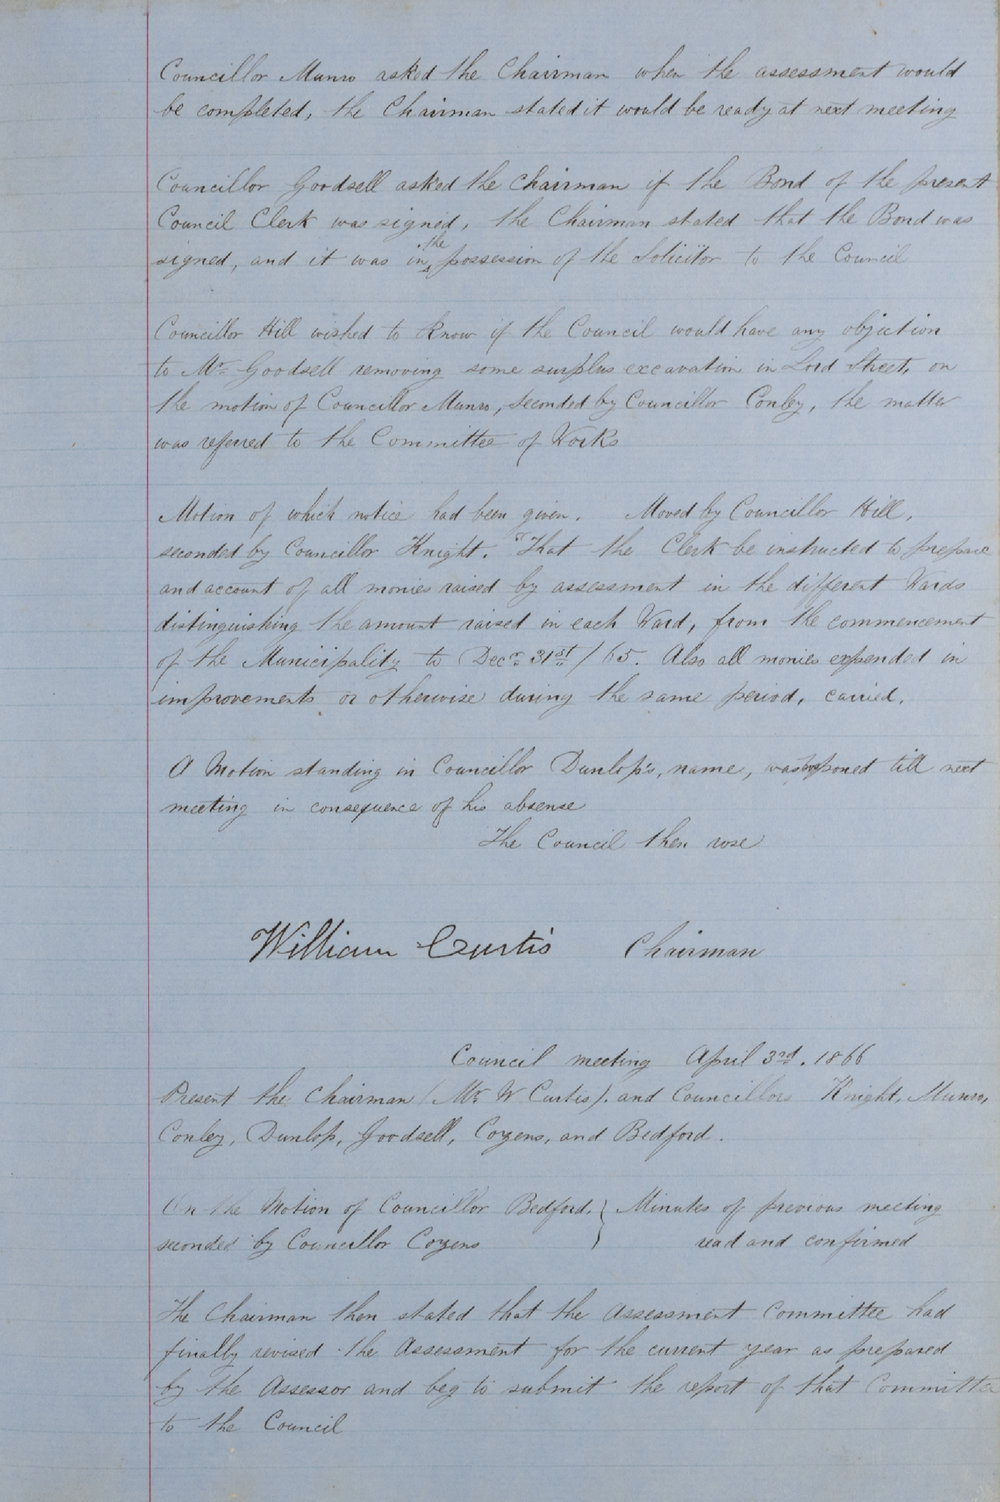 Councillor Munro asked the Chairman when the assessment would
be completed, the Chairman stated it would be ready at next meeting
Councillor Goodsell asked the Chairman if the Bond of the present
Council Clerk was signed, the Chairman stated that the Bond was
signed, and it was in the possession of the Solicitor to the Council
Councillor Hill wished to know if the Council would have any objection
to Mr Goodsell removing some surplus excavation in Lord Street, on
the motion of Councillor Munro, seconded by Councillor Conley, the matter
was referred to the Committee of Works
Motion of which notice had been given. Moved by Councillor Hill,
seconded by Councillor Knight. "That the Clerk be instructed to prepare
and account of all monies raised by assessment in the different Wards
distinguishing the amount raised in each Ward, from the commencement
of the Municipality to Decr 31st / 65. Also all monies expended in
improvements or otherwise during the same period, carried.
A Motion standing in Councillor Dunlop's, name, was till next
meeting in consequence of his absense
The Council then rose
William Curtis Chairman
Council meeting April 3rd. 1866
Present the Chairman (Mr W Curtis). and Councillors Knight, Munro,
Conley, Dunlop, Goodsell, Cozens, and Bedford.
On the Motion of Councillor Bedford. } Minutes of previous meeting
seconded by Councillor Cozens read and confirmed
The Chairman then stated that the Assessment Committee had
finally revised the Assessment for the current year as prepared
by the Assessor and beg to submit the report of that Committee
to the Council